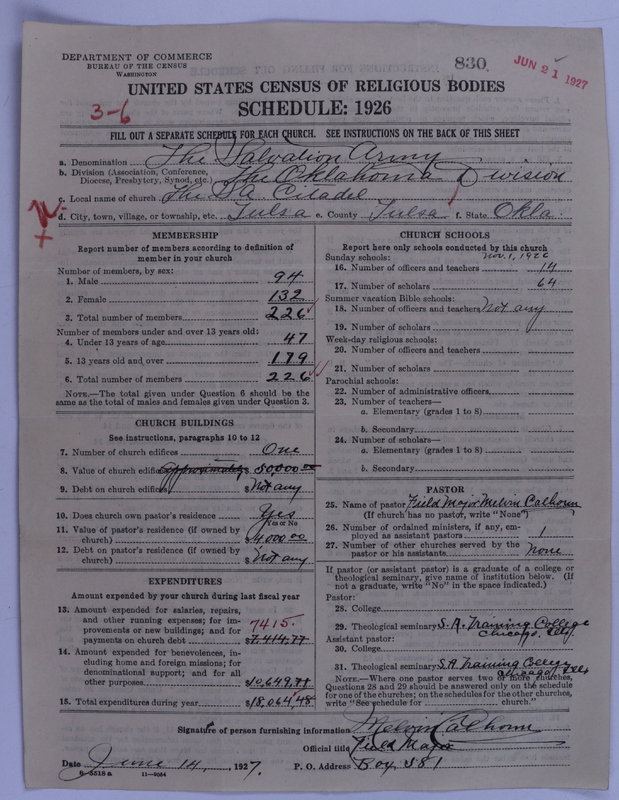 DEPARTMENT OF COMMERCE
BUREAU OF THE CENSUS
WASHINGTON
830
JUN 21 1927
UNITED STATES CENSUS OF RELIGIOUS BODIES
SCHEDULE: 1926
3-6
FILL OUT A SEPARATE SCHEDULE FOR EACH CHURCH. SEE INSTRUCTIONS ON THE BACK OF THIS SHEET
a. Denomination The Salvation Army
b. Division (Association, Conference, Diocese, Presbytery, Synod, etc.) The Oklahoma Division
c. Local name of church The S.A. Citadel
d. City, town, village, or township, etc. Tulsa e. County Tulsa f. State Okla.
MEMBERSHIP
Report number of members according to definition of
member in your church
Number of members, by sex:
1. Male 94
2. Female 132
3. Total number of members 226
Number of members under and over 13 years old:
4. Under 13 years of age 47
5. 13 years old and over 179
6. Total number of members 226
NOTE.—The total given under Question 6 should be
same as the total of males and females given under Question 3.
CHURCH BUILDINGS
See instructions, paragraphs 10 to 12
7. Number of church edifices One
8. Value of church edifices approximately $ 50,000.00
9. Debt on church edifices $ Not any
10. Does church own pastor's residence Yes
Yes or No
11. Value of pastor's residence (if owned by
church) $4,000.00
12. Debt on pastor's residence (if owned by
church) $ Not any
EXPENDITURES
Amount expended by your church during last fiscal year
13. Amount expended for salaries, repairs,
and other running expenses; for im-
provements or new buildings; and for
payments on church debt 7415. $7,414.77
14. Amount expended for benevolences, in-
cluding home and foreign missions; for
denominational support; and for all
other purposes $10,649.71
15. Total expenditures during year $18,064.48
CHURCH SCHOOLS
Report here only schools conducted by this church
Sunday schools: Nov. 1, 1926
16. Number of officers and teachers 14
17. Number of scholars 64
Summer vacation Bible schools:
18. Number of officers and teachers Not any
19. Number of scholars
Week-day religious schools:
20. Number of officers and teachers
21. Number of scholars
Parochial schools:
22. Number of administrative officers
23. Number of teachers—
a. Elementary (grades 1 to 8)
b. Secondary
24. Number of scholars—
a. Elementary (grades 1 to 8)
b. Secondary
PASTOR
25. Name of pastor Field Major Melvin Calhoun
(If church has no pastor, write "None")
26. Number of ordained ministers, if any, em-
ployed as assistant pastors 1
27. Number of other churches served by the
pastor or his assistants none
If pastor (or assistant pastor) is a graduate of a college or
theological seminary, give name of institution below. (If
not a graduate, write "No" in the space indicated.)
Pastor:
28. College
29. Theological seminary S.A. Training College
Chicago, Ill.
Assistant pastor:
30. College
31. Theological seminary S.A. Training College
Chicago Ill.
NOTE.—Where one pastor serves two or more churches,
Questions 28 and 29 should be answered only on the schedule
for one of the churches; on the schedules for the other churches,
write "See schedule for church."
Signature of person furnishing information Melvin Calhoun
Official title Field Major
Date June 14, 1927. P. O. Address Box 581
11—9084